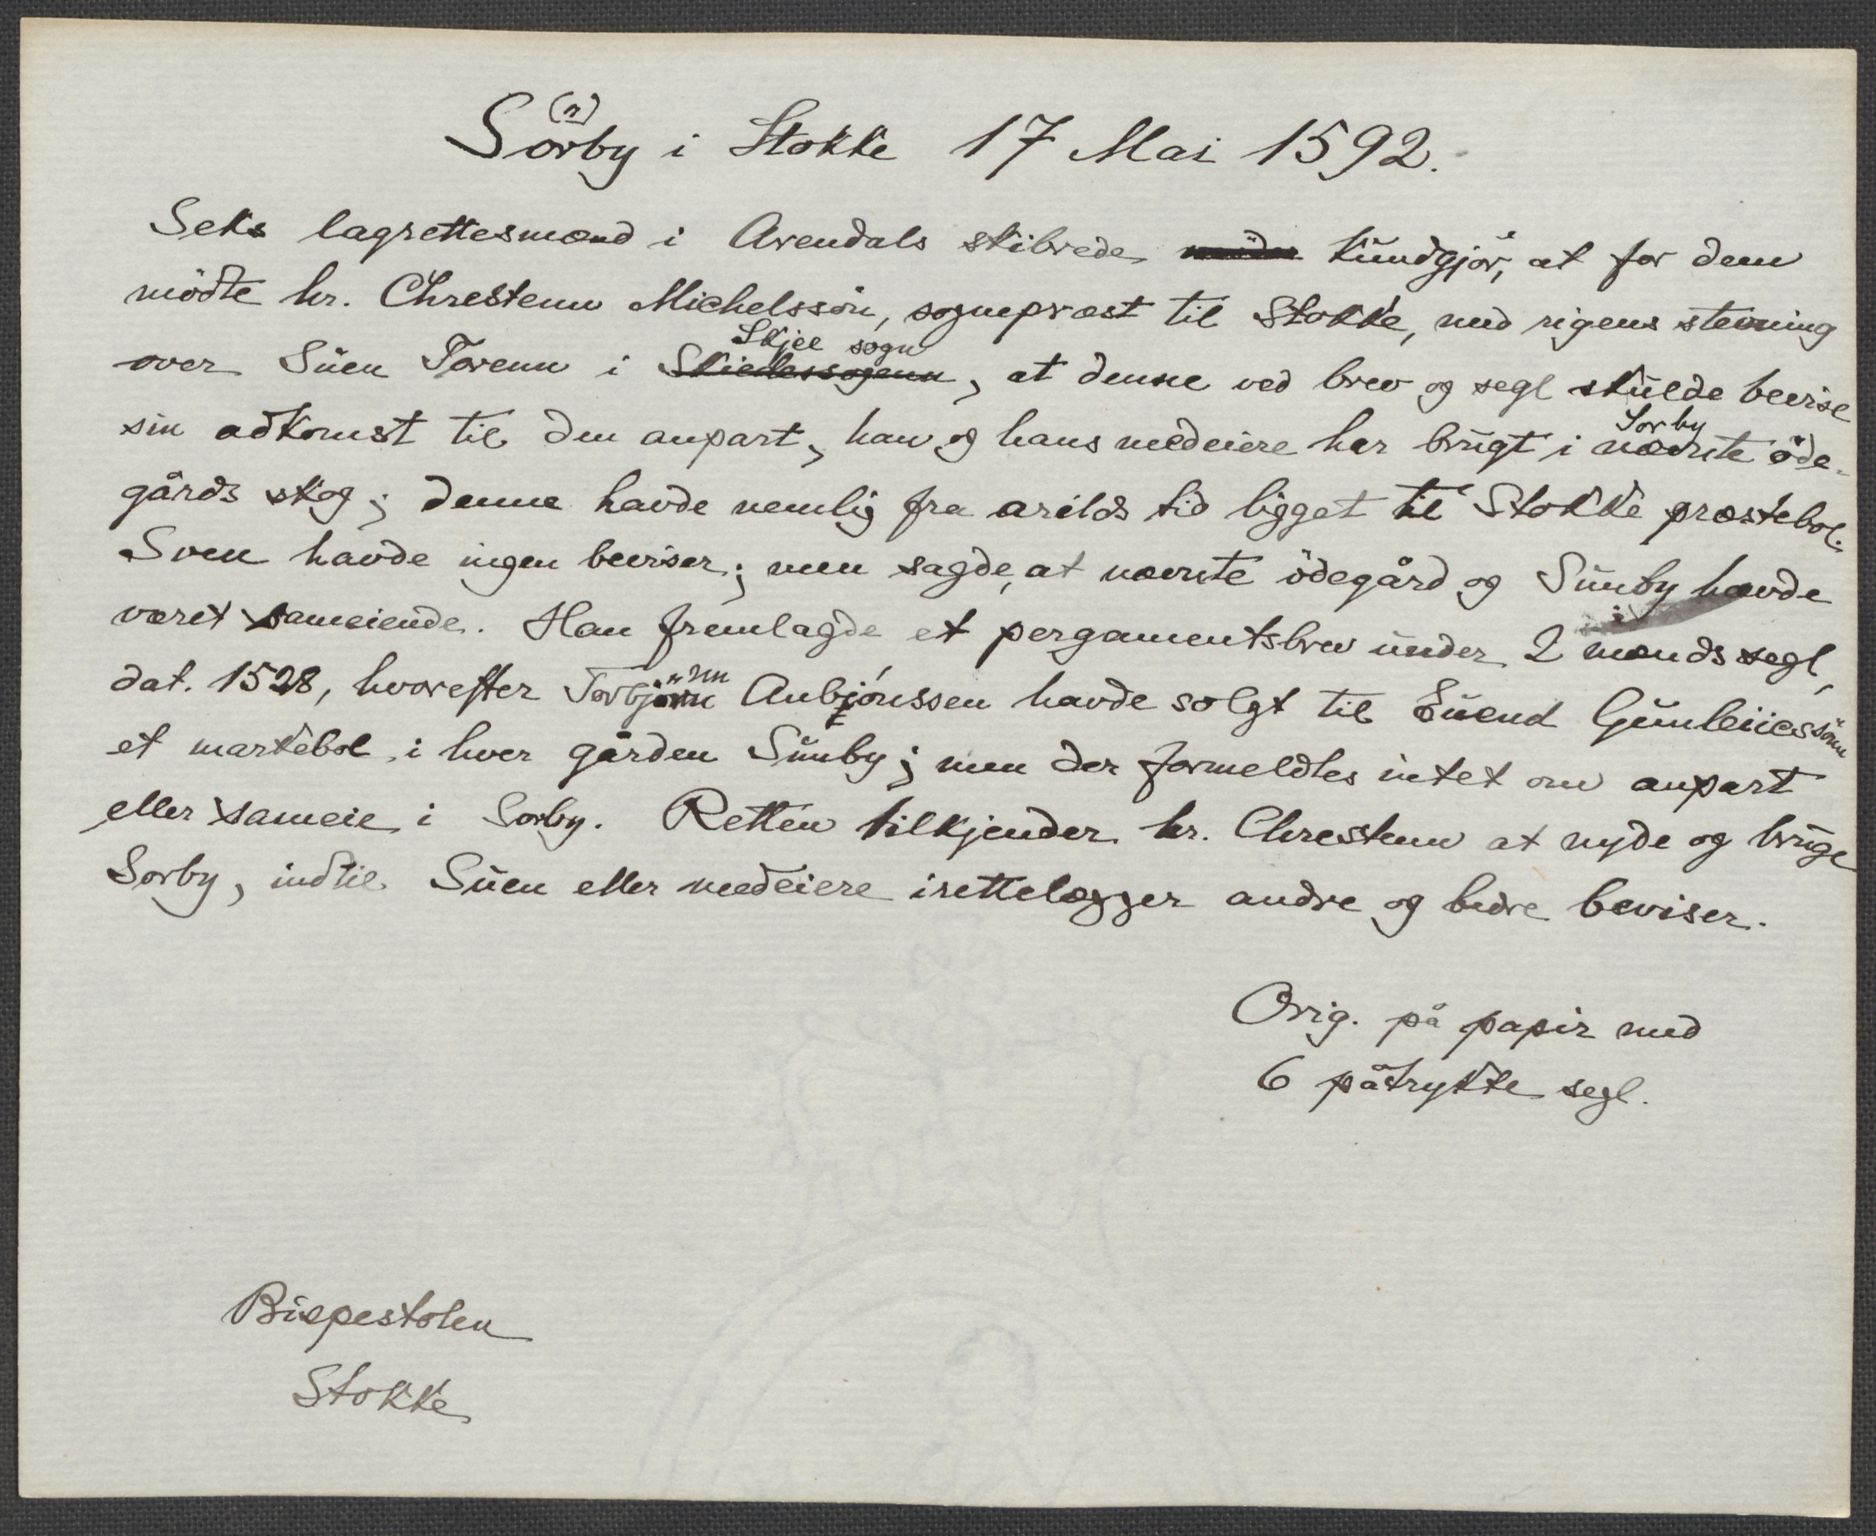 Sö(n)rby i Stokke 17 Mai 1592.
Seks lagrettesmænd i Arendals skibrede kundgjør, at for dem
mödte hr. Chrestenn Michelssön, sognepræst til Stokke, med rigens stevning
over Suen Torenn i Skiellessogenn Skjee sogn, at denne ved brev og segl skulde bevise
sin adkomst til den anpart, han og hans medeiere har brugt i nævnte Sorby öde-
gårds skog; denne havde nemlig fra arilds tid ligget til Stokke præstebol.
Sven havde ingen beviser; men sagde, at nævnte ödegård og Sunby havde
været i sameiende. Han fremlagde et pergamentsbrev under 2 mænds segl,
dat. 1528, hvorefter Torbjörnn Aubjónssen havde solgt til Suend Gunleiicssönn
et markebol i hver gården Sunby; men der formeldtes intet om anpart
eller sameie i Sorby. Retten tilkjender hr. Chrestenn at nyde og bruge
Sorby, indtil Suen eller medeiere irettelægger andre og bedre beviser.
Orig. på papir med
6 påtrykte segl.
Bispestolen
Stokke